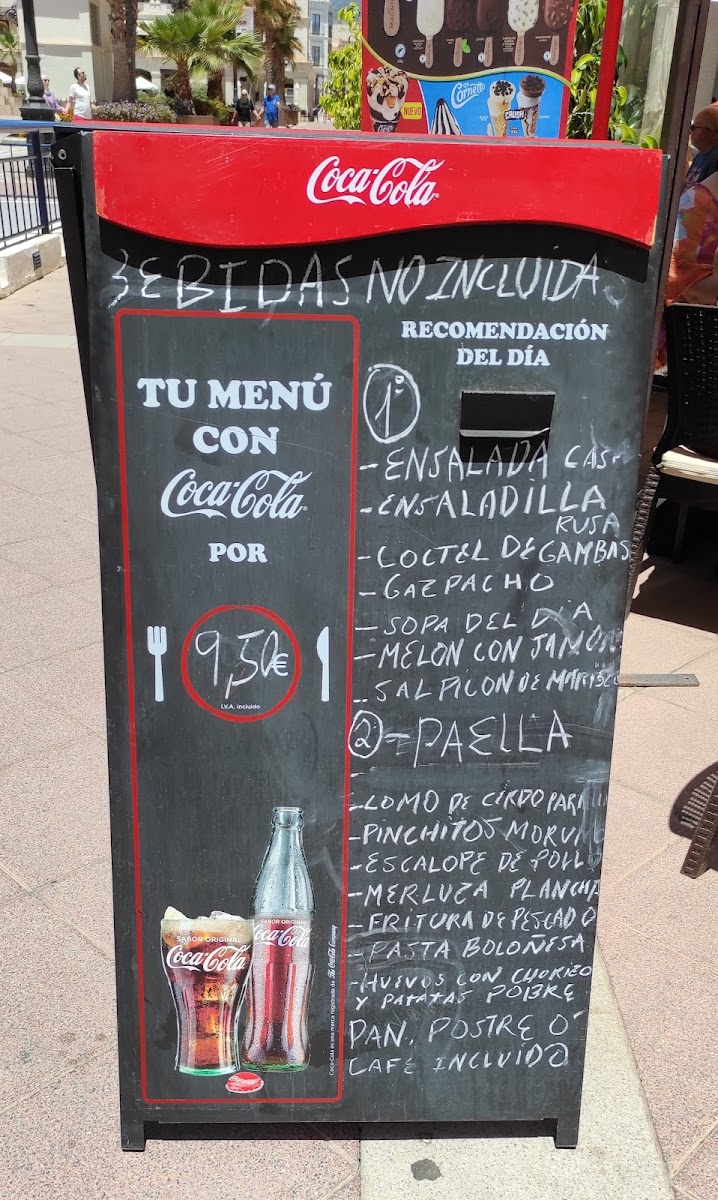 Cornetto
NUEVO
CRUSH
Coca-Cola
BEBIDAS NO INCLUIDA
RECOMENDACIÓN
DEL DÍA
TU MENÚ
CON
Coca-Cola
POR
9,50€
I.V.A. incluido
1º
- ENSALADA CASA
- ENSALADILLA
RUSA
- COCTEL DE GAMBAS
- GAZPACHO
- SOPA DEL DIA
- MELON CON JAMON
- SALPICON DE MARISCO
2 - PAELLA
-
- LOMO DE CERDO
- PINCHITOS
- ESCALOPE DE POLLO
- MERLUZA PLANCHA
- FRITURA DE PESCADO
- PASTA BOLOÑESA
- HUEVOS CON CHORIZO
Y PATATAS POBRE
PAN, POSTRE Ó
CAFE INCLUIDO
SABOR ORIGINAL
Coca-Cola
SABOR ORIGINAL
Coca-Cola
Coca-Cola es una marca registrada de The Coca-Cola Company